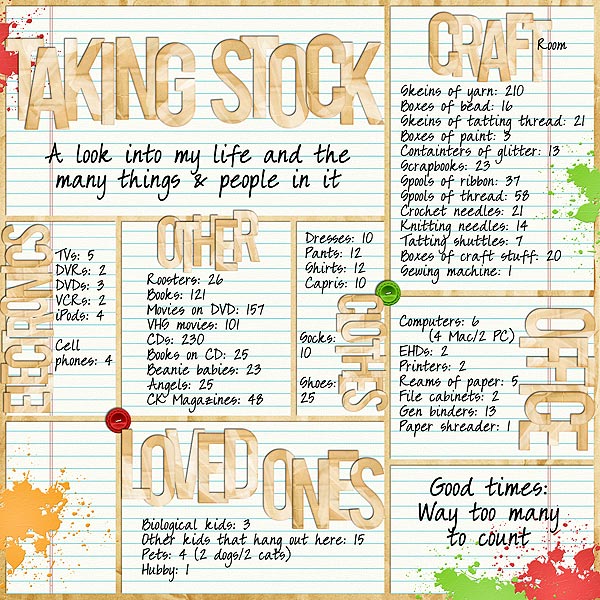 TAKING STOCK
A look into my life and the
many things & people in it
CRAFT Room
Skeins of yarn: 210
Boxes of bead: 16
Skeins of tatting thread: 21
Boxes of paint: 3
Containters of glitter: 13
Scrapbooks: 23
Spools of ribbon: 37
Spools of thread: 58
Crochet needles: 21
Knitting needles: 14
Tatting shuttles: 7
Boxes of craft stuff: 20
Sewing machine: 1
ELECRONICS
TVs: 5
DVRs: 2
DVDs: 3
VCRs: 2
iPods: 4
Cell
phones: 4
OTHER
Roosters: 26
Books: 121
Movies on DVD: 157
VHS movies: 101
CDs: 230
Books on CD: 25
Beanie babies: 23
Angels: 25
CK Magazines: 48
Dresses: 10
Pants: 12
Shirts: 12
Capris: 10
Socks:
10
Shoes:
25
CLOTHES
Computers: 6
(4 Mac/2 PC)
EHDs: 2
Printers: 2
Reams of paper: 5
File cabinets: 2
Gen binders: 13
Paper shreader: 1
OFFICE
LOVED ONES
Biological kids: 3
Other kids that hang out here: 15
Pets: 4 (2 dogs/2 cats)
Hubby: 1
Good times:
Way too many
to count